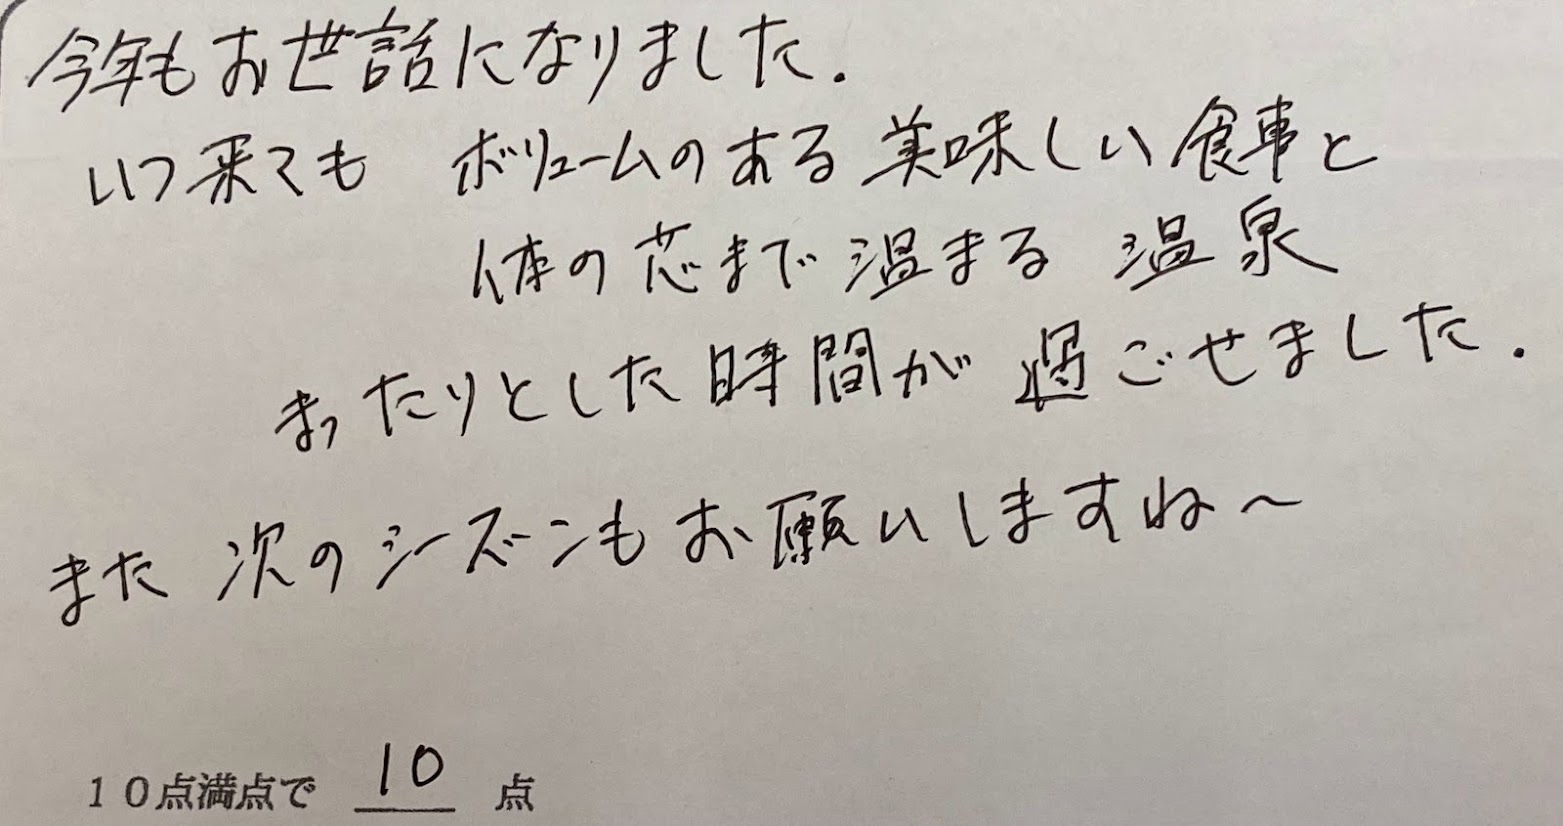 今年もお世話になりました.
いつ来ても ボリュームのある美味しい食事と
体の芯まで温まる 温泉
まったりとした時間が過ごせました.
また次のシーズンもお願いしますね〜
10点満点で 10 点